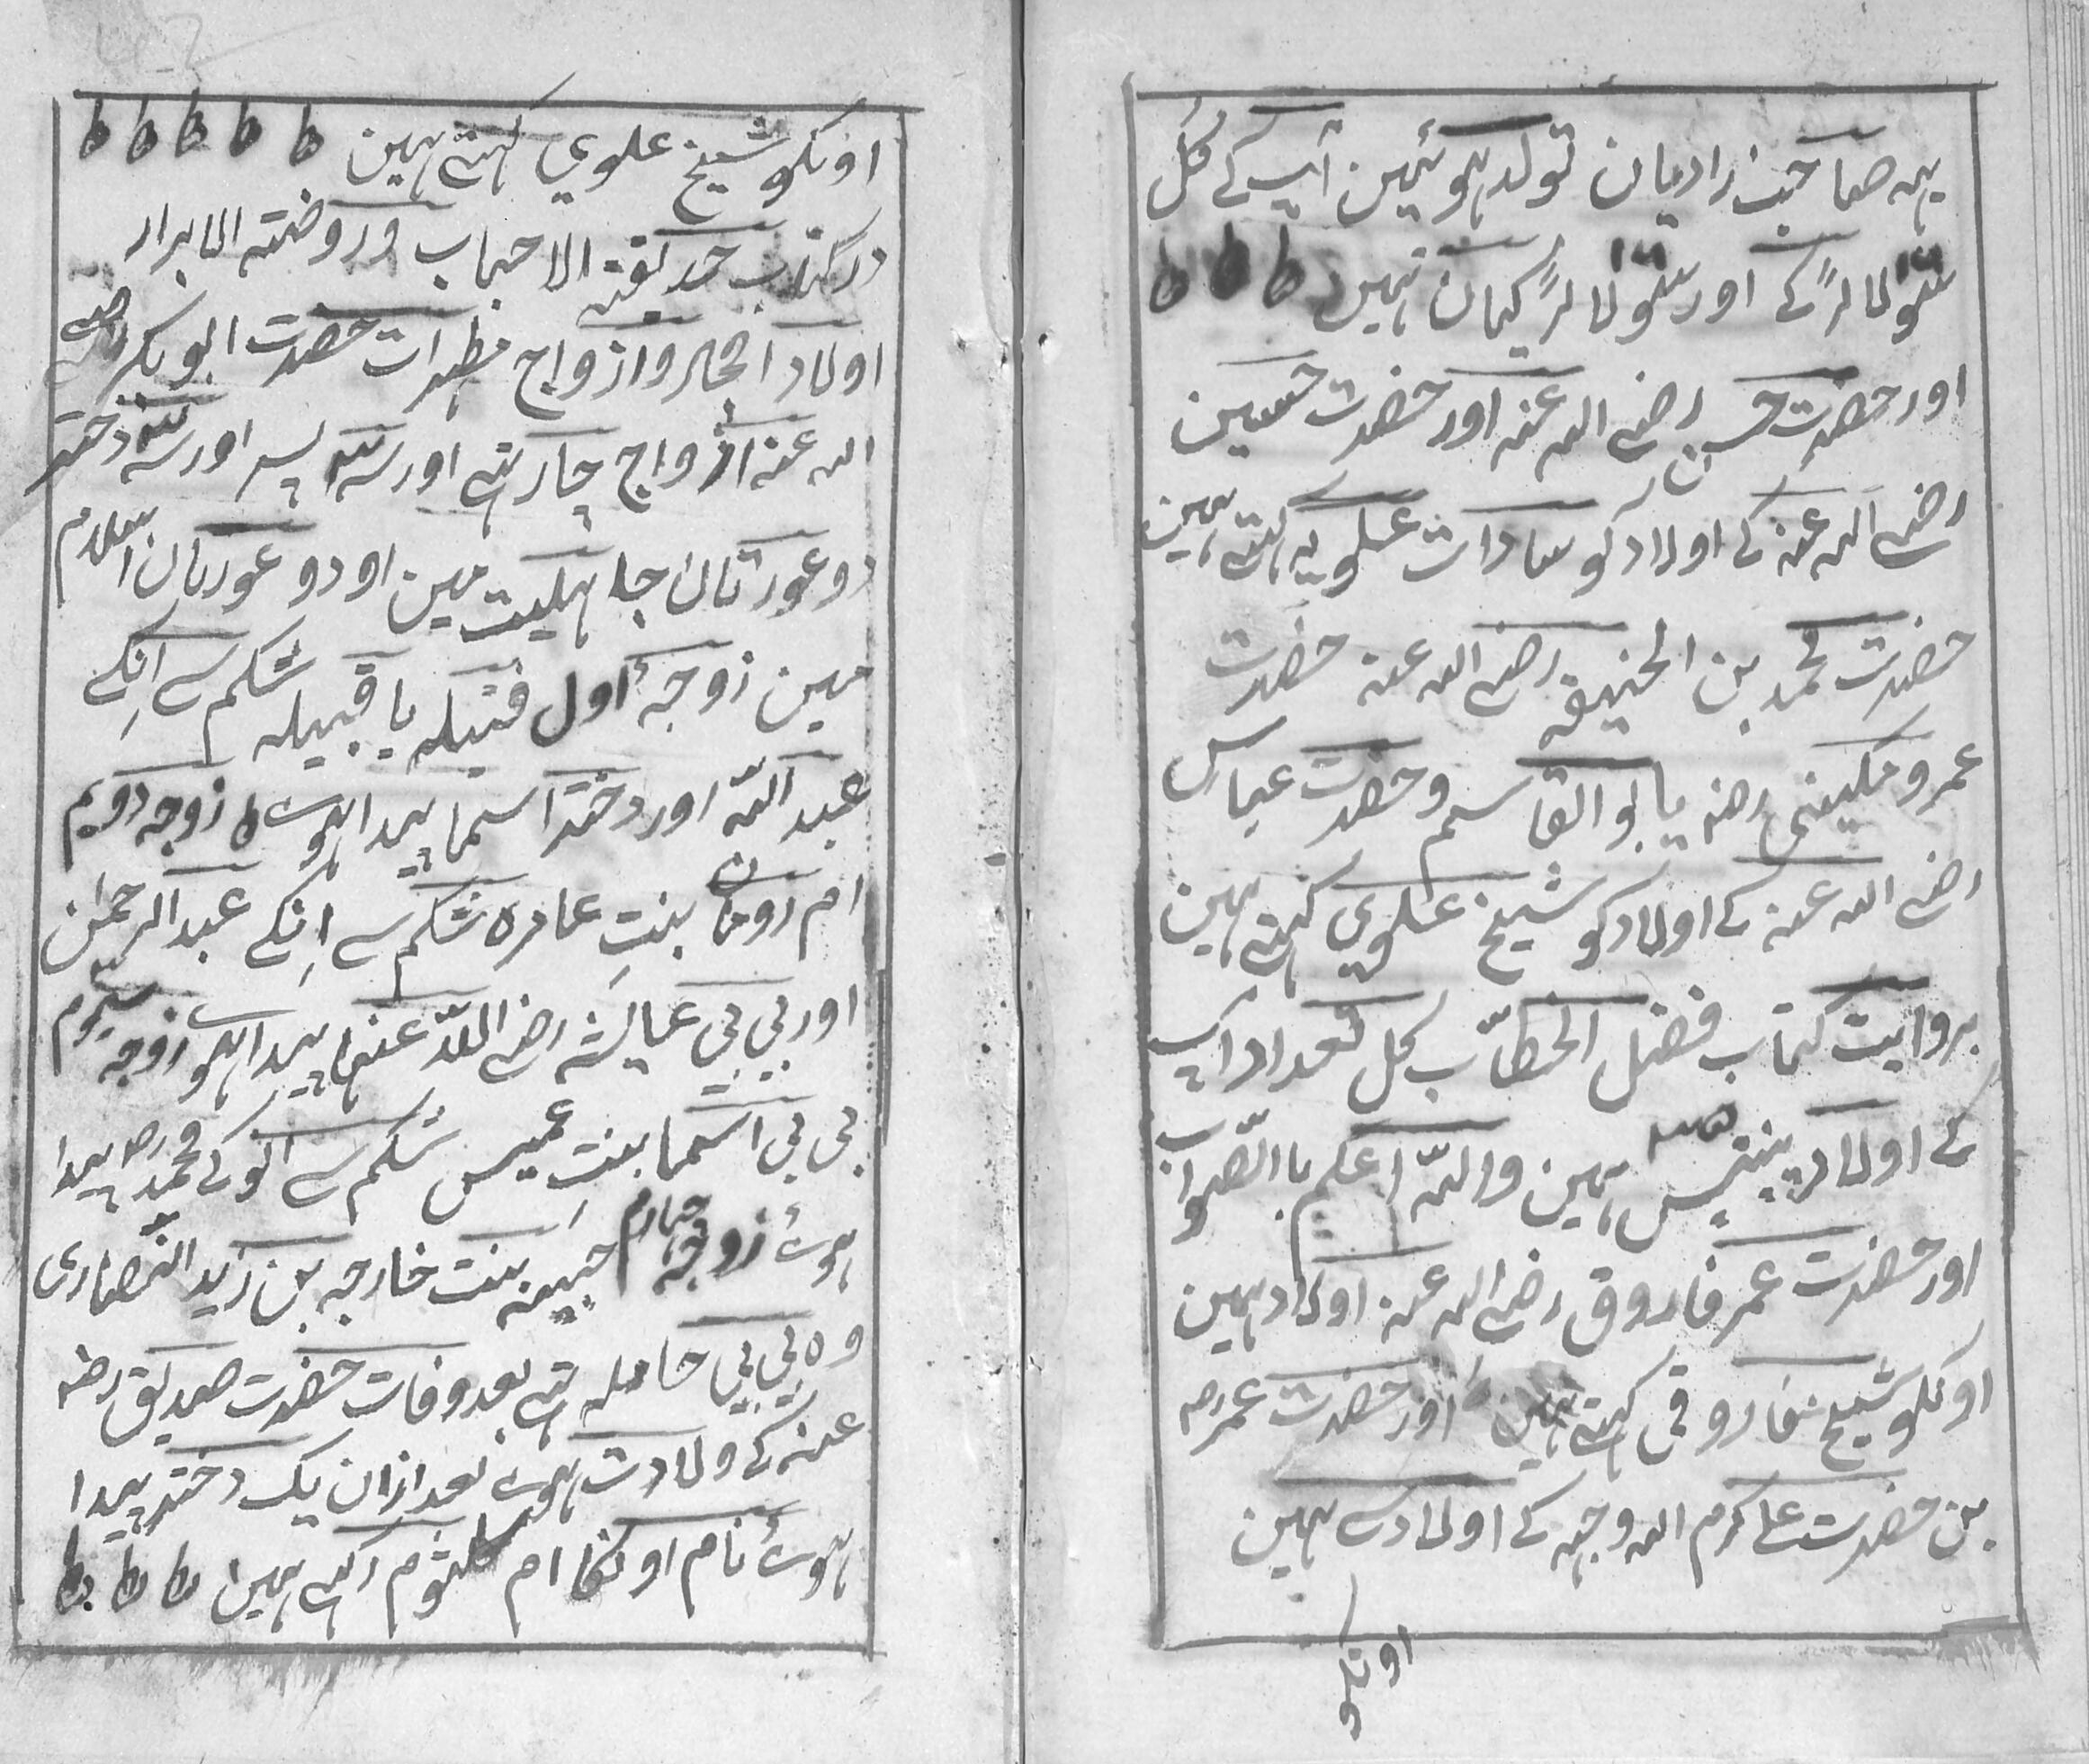 یہہ صاحب زادیان تولد ہوئین آپ کے کل
سولا لڑکے اور سولا لڑکیان ہین ط ط ط
اور حضرت حسن رضی اللہ عنہ اور حضرت حسین
رضی اللہ عنہ کے اولاد کو سادات علویہ کہتے ہین
حضرت محمد بن الحنیفہ رضی اللہ عنہ حضرت
عمرو رضہ یا بو القاسم و حضرت عباس
رضی اللہ عنہ کے اولاد کو شیخ علوی کہتے ہین
بروایت کتاب فضل الخطاب کل تعداد آپ
کے اولاد پینتیس ہین واللہ اعلم باالصواب
اور حضرت عمر فاروق رضی اللہ عنہ اولاد ہین
اونکو شیخ فاروقی کہتے ہین اور حضرت عمر رضہ
بن حضرت علے کرم اللہ وجہہ کے اولاد سے ہین
اونکو
اونکو شیخ علوی کہتے ہین ط ط ط ط ط
در کتاب حدیقتہ الاحباب و روضتہ الابرار
اولاد امجاد و ازواج مطہرات حضرت ابو بکر رضی
اللہ عنہ ازواج چار تہے اور سہ پسر اور سہ دختر
دو عورتان جاہلیت مین او دو عورتان اسلام
مین زوجہٴ اول قتیلہ یا قبیلہ شکم سے انکے
عبد اللہ اور دختر اسما پیدا ہوے ط زوجہ دویم
ام رومان بنتِ عامرہ شکم سے اِنکے عبد الرحمٰن
اور بی بی عایشہ رضی اللہ عنہا پیدا ہوے زوجہ سیوم
بی بی اسما بنتِ عمیس شکم سے انو کے محمد رضہ پیدا
ہوئے زوجہ چہارم حبیبہ بنت خارجہ بن زید انصاری
وہ بی بی حاملہ تہے بعد وفات حضرت صدیق رضہ
عنہ کے ولادت ہوے بعد ازان یک دختر پیدا
ہوئے نام اونکا ام کلثوم رکہے ہین ط ط ط